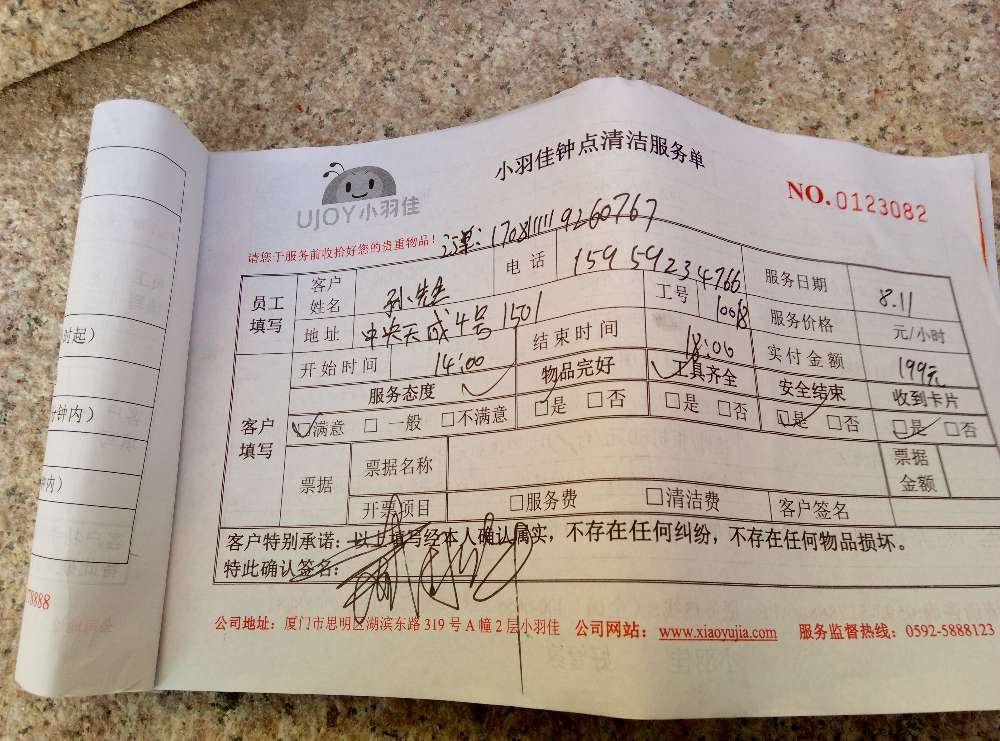 小羽佳钟点清洁服务单
UJOY小羽佳
NO.0123082
请您于服务前收拾好您的贵重物品!
170811119260767
员工填写 客户姓名 孙先生 电话 15959234766 服务日期 8.11
地址 中央天成4号1501 工号 1008 服务价格 元/小时
开始时间 14:00 结束时间 18:00 实付金额 199元
客户填写 服务态度 物品完好 工具齐全 安全结束 收到卡片
□满意 □一般 □不满意 □是 □否 □是 □否 □是 □否 □是 □否
票据 票据名称 票据金额
开票项目 □服务费 □清洁费 客户签名
客户特别承诺:以上填写经本人确认属实,不存在任何纠纷,不存在任何物品损坏。
特此确认签名:
公司地址:厦门市思明区湖滨东路319号A幢2层小羽佳 公司网站:www.xiaoyujia.com 服务监督热线:0592-5888123
时起)
钟内)
内)
8888